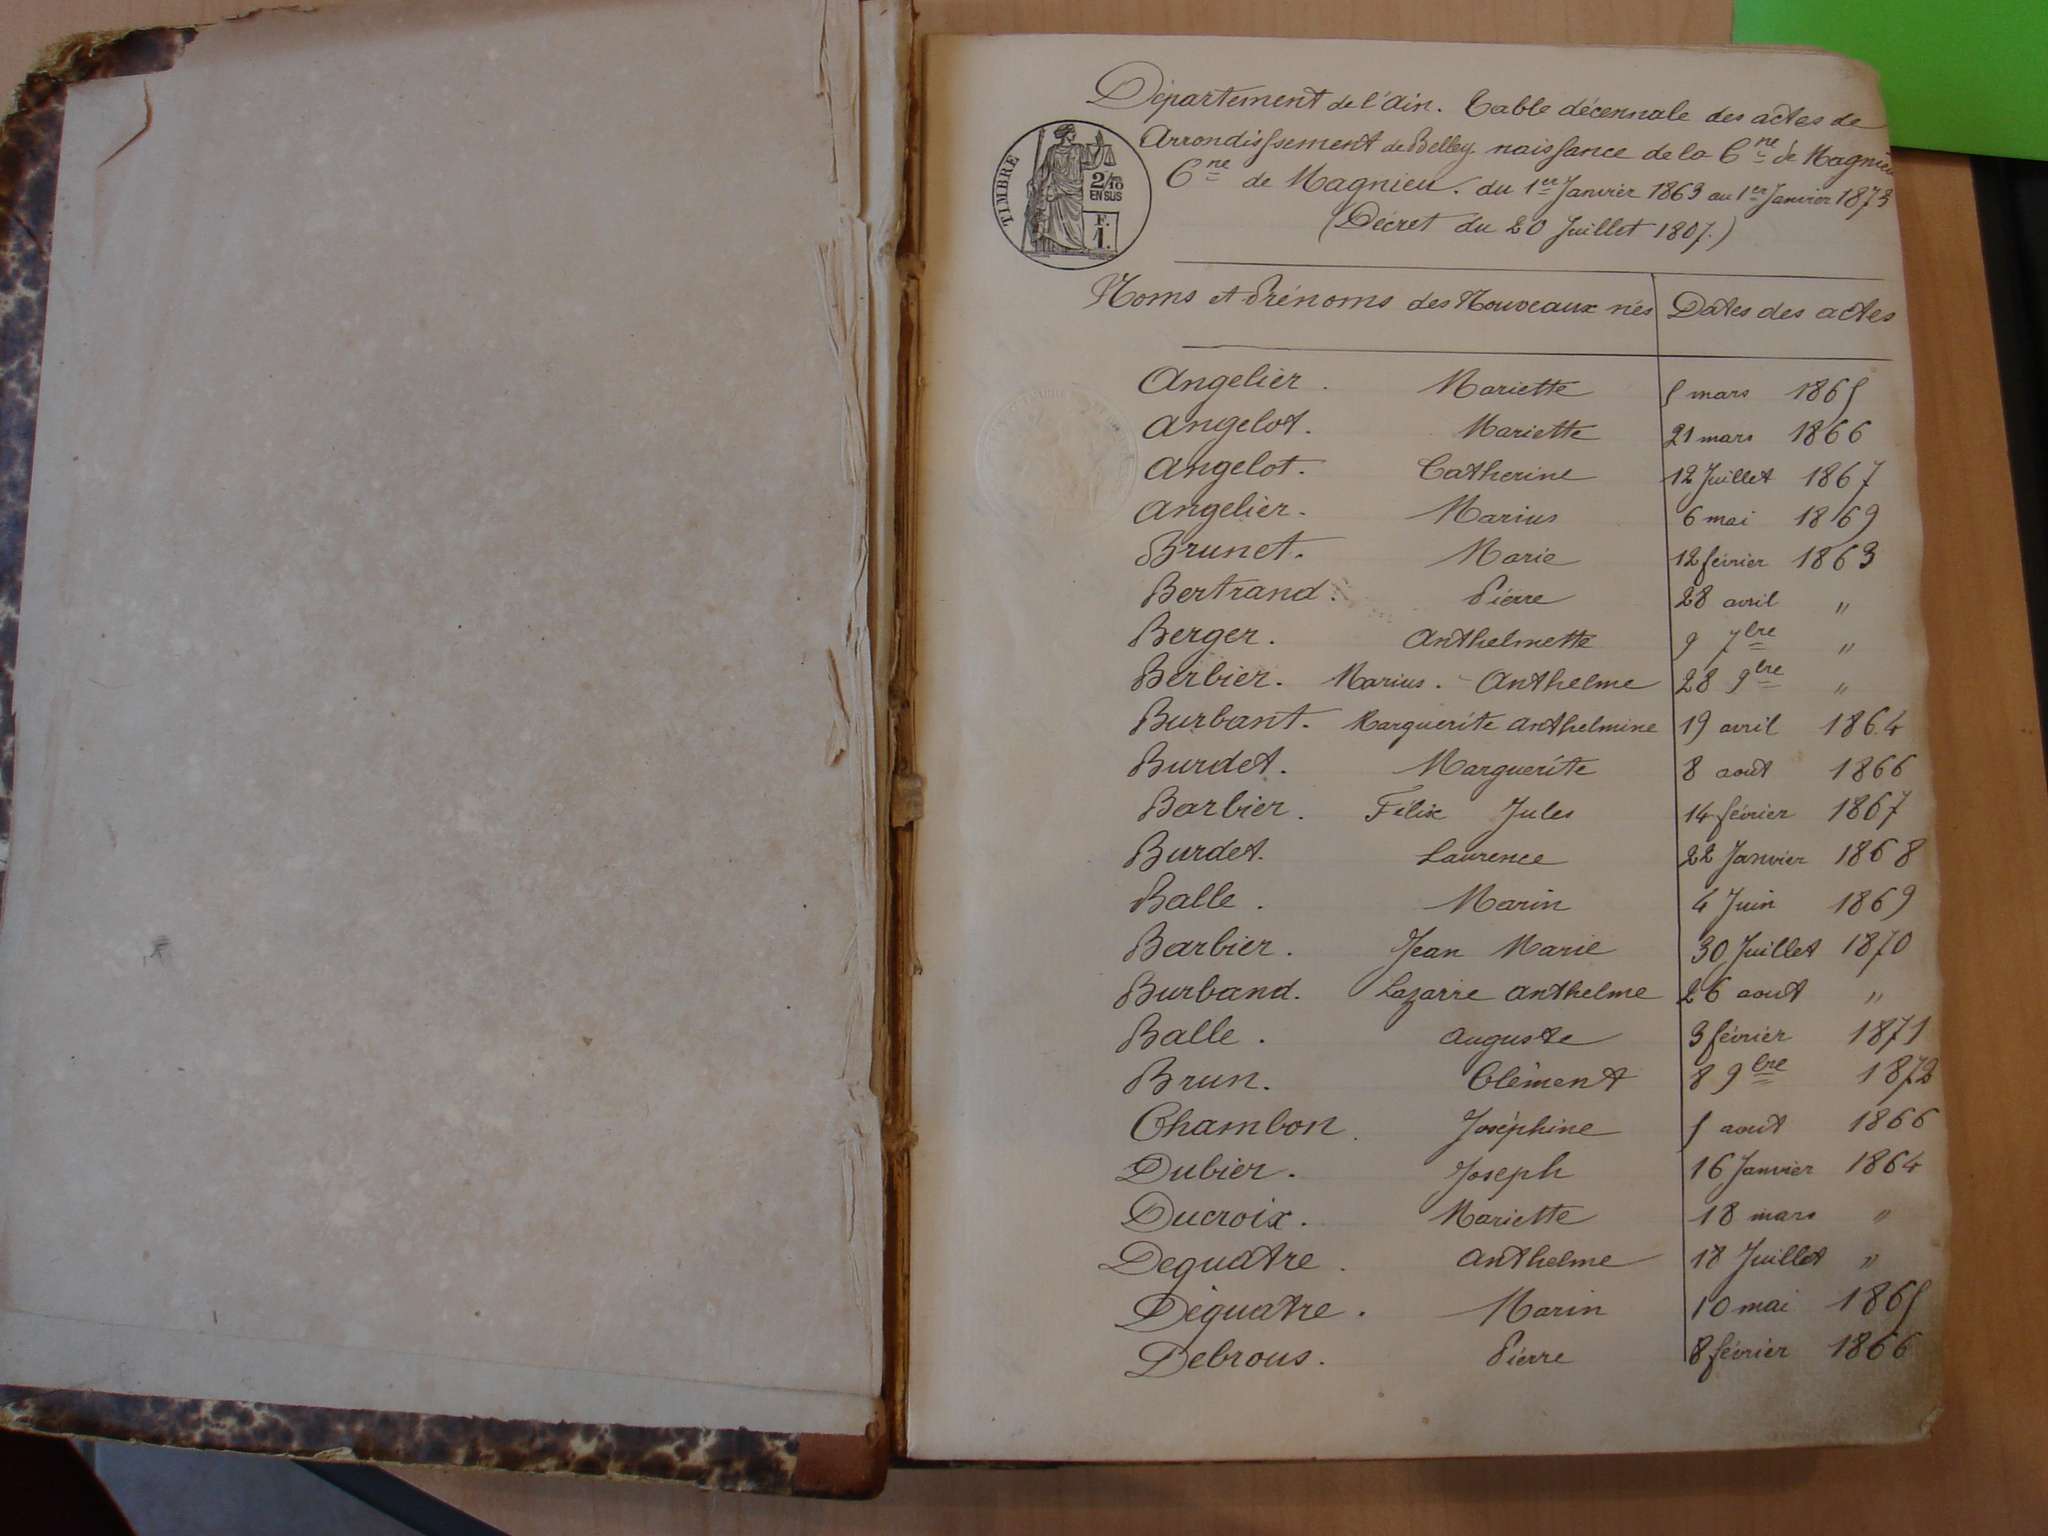 Département de l'Ain. Table décennale des actes de
Arrondissement de Belley. naissance de la Cne de Magnieu
Cne de Magnieu. du 1er Janvier 1863 au 1er Janvier 1873
(Décret du 20 Juillet 1807.)
TIMBRE
2/10
EN SUS
F.
1.
Noms et Prénoms des Nouveaux nés Dates des actes
Angelier. Mariette 5 mars 1865
Angelot. Mariette 21 mars 1866
Angelot. Catherine 12 Juillet 1867
Angelier. Marius 6 mai 1869
Brunet. Marie 12 février 1863
Bertrand. Pierre 28 avril "
Berger. Anthelmette 9 7bre "
Berbier. Marius. Anthelme 28 9bre "
Burbant. Marguerite Anthelmine 19 avril 1864
Burdet. Marguerite 8 aout 1866
Barbier. Félix Jules 14 février 1867
Burdet. Laurence 22 Janvier 1868
Balle. Marin 4 Juin 1869
Barbier. Jean Marie 30 Juillet 1870
Burband. Lazarre Anthelme 26 aout "
Balle. Auguste 3 février 1871
Brun. Clément 8 9bre 1872
Chambon. Joséphine 5 aout 1866
Dubier. Joseph 16 Janvier 1864
Ducroix. Mariette 18 mars "
Dequatre. Anthelme 18 Juillet "
Déquatre. Marin 10 mai 1865
Debrous. Pierre 8 février 1866